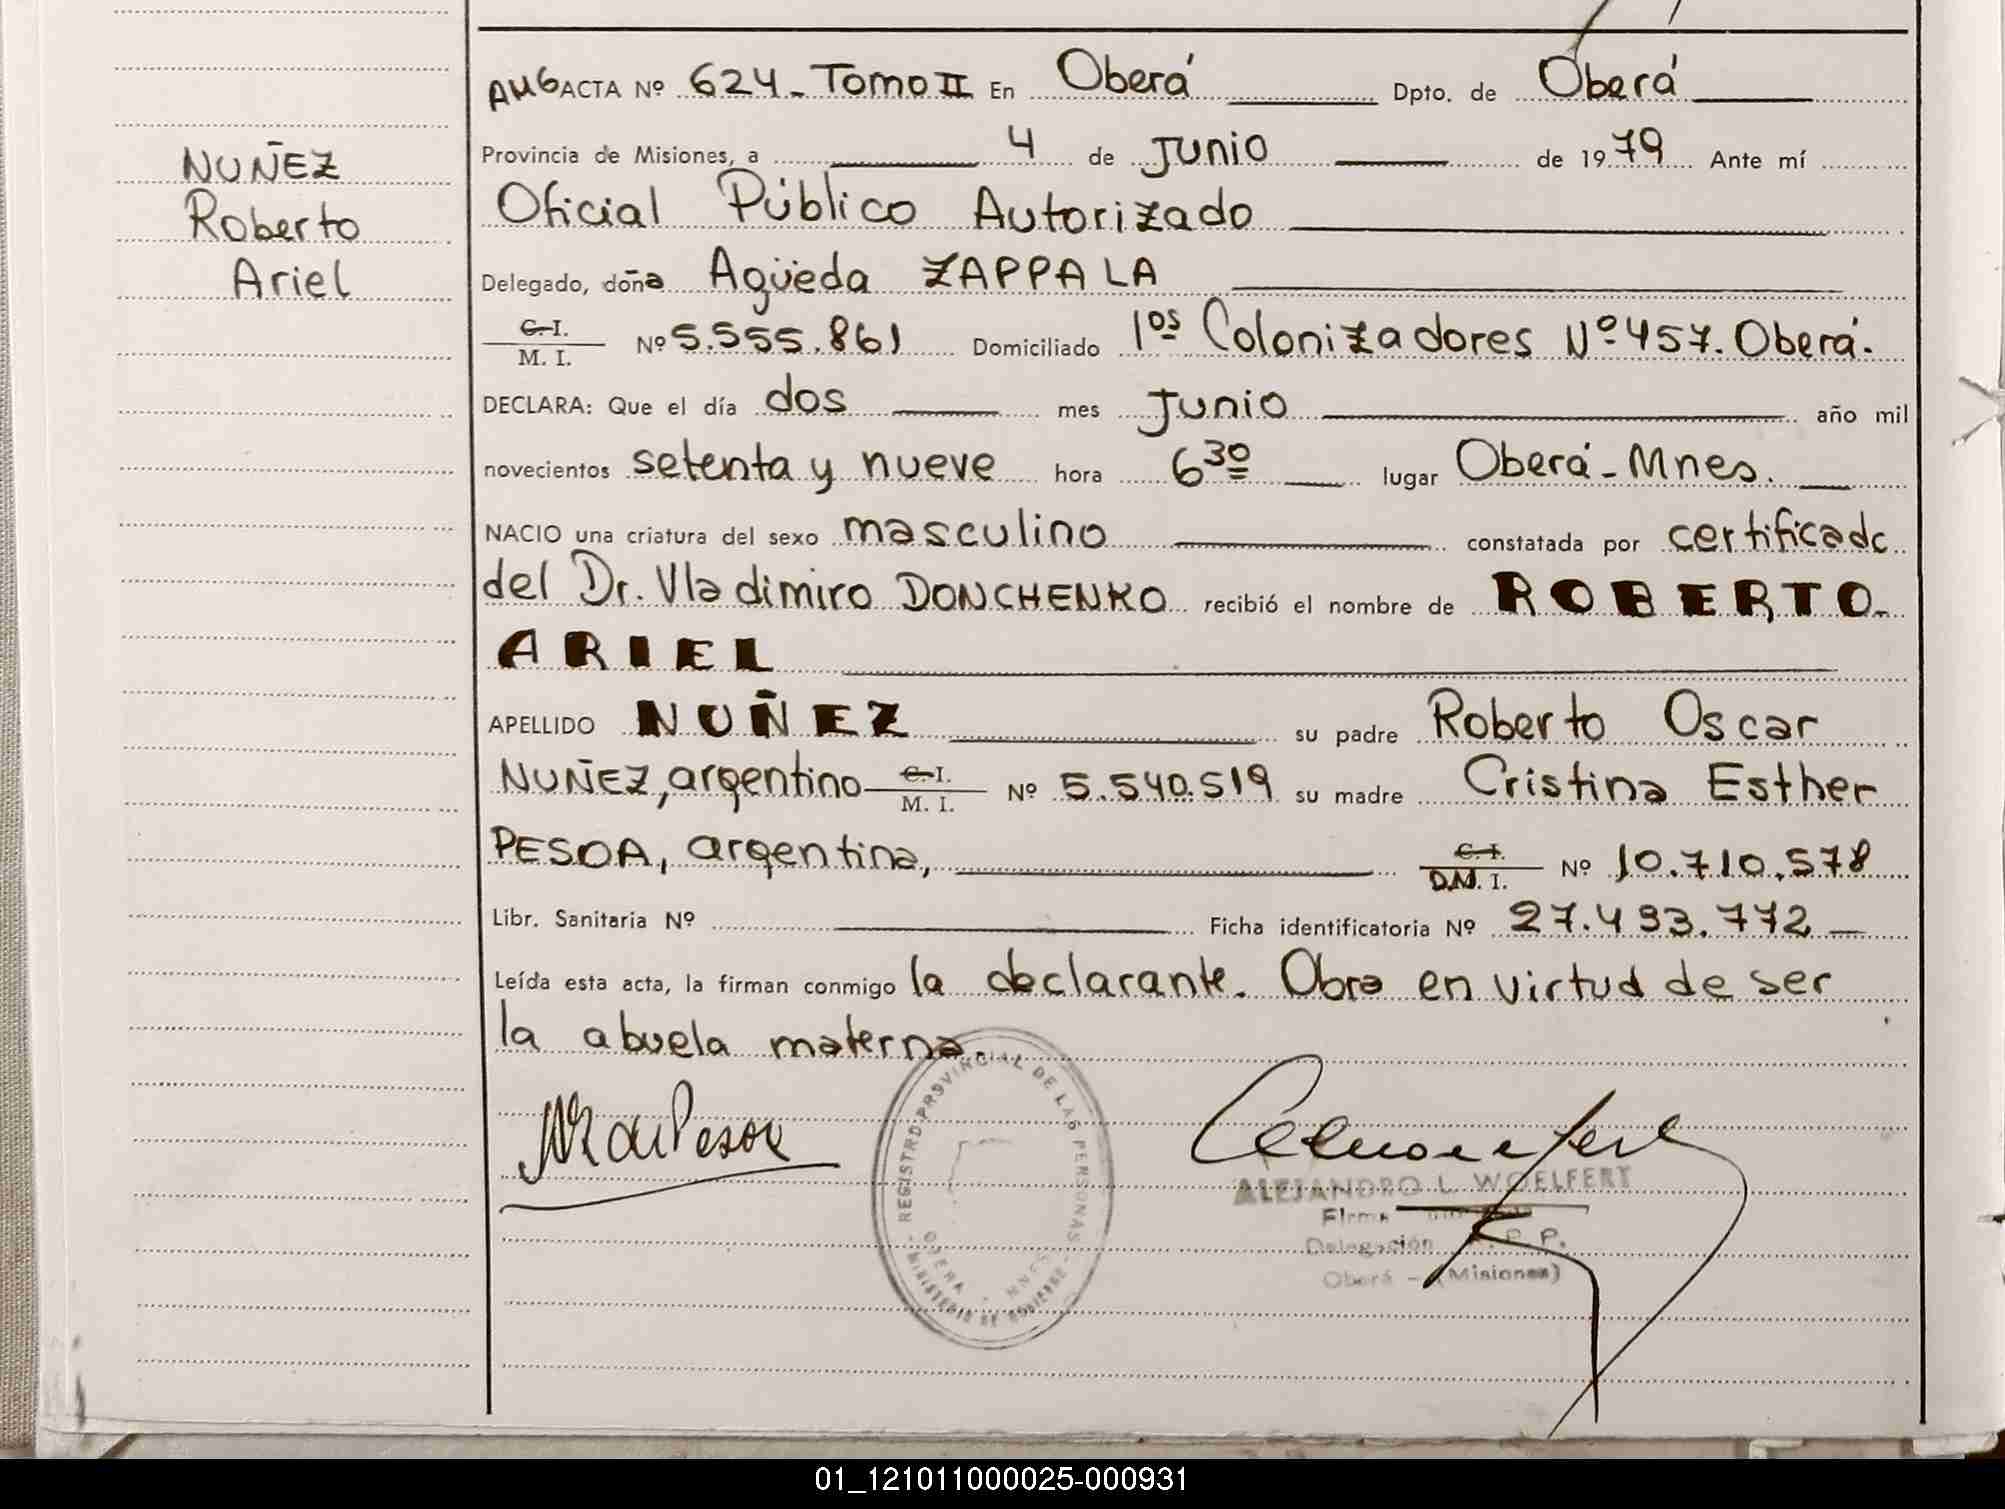 AMG ACTA Nº 624 - Tomo II En Oberá Dpto. de Oberá
Provincia de Misiones, a 4 de Junio de 1979 Ante mí
NUÑEZ
Roberto
Ariel
Oficial Público Autorizado
Delegado, doña Agüeda ZAPPALA
C.I.
M. I. Nº 5.555.861 Domiciliado 1os Colonizadores Nº 457. Oberá.
DECLARA: Que el día dos mes Junio año mil
novecientos setenta y nueve hora 6 30 lugar Oberá - Mnes.
NACIO una criatura del sexo masculino constatada por certificado
del Dr. Vladimiro DONCHENKO recibió el nombre de ROBERTO
ARIEL
APELLIDO NUÑEZ su padre Roberto Oscar
NUÑEZ, argentino C.I. M. I. Nº 5.540.519 su madre Cristina Esther
PESOA, argentina, C. I. D.N. I. Nº 10.710.578
Libr. Sanitaria Nº Ficha identificatoria Nº 27.493.772
Leída esta acta, la firman conmigo la declarante. Obra en virtud de ser
la abuela materna.
REGISTRO PROVINCIAL DE LAS PERSONAS
MINISTERIO DE GOBIERNO
OBERA - MNES
de Pesoa
ALEJANDRO L. WOELFERT
Firma
Delegación R. P. P.
Oberá - (Misiones)
01_121011000025-000931